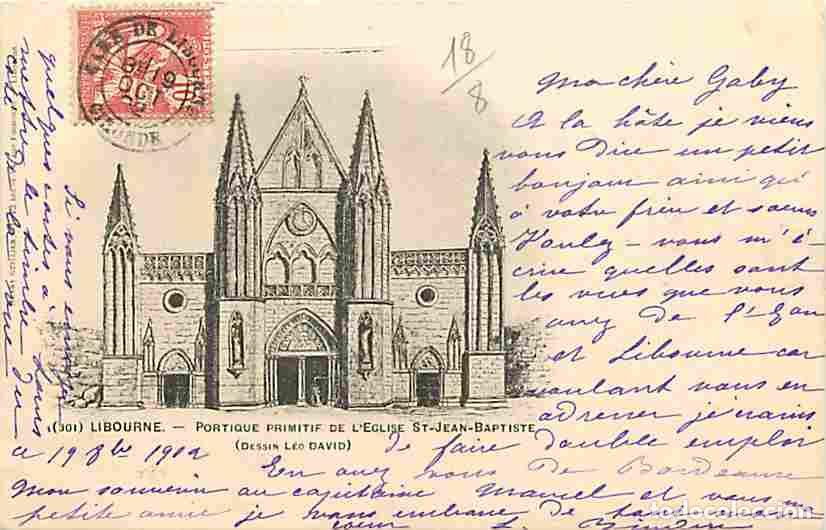 GARE DE LIBOURNE
GIRONDE
18/8
Ma chère Gaby
A la hâte je viens
vous dire un petit
bonjour ainsi qu'
à votre frère et soeurs
Voulez-vous m'é-
crire quelles sont
les vues que vous
avez de l'
et Libourne car
voulant vous en
adresser je crains
de faire double emploi
En avez vous de Bordeaux
Mon souvenir au capitaine Marcel et vous m
petite amie je vous embrasse de tout
coeur
(301) LIBOURNE. — PORTIQUE PRIMITIF DE L'EGLISE ST-JEAN-BAPTISTE
(DESSIN LÉO DAVID)
ce 19 8bre 1902
Si vous envoyez
quelques cartes à Louis
mettez le timbre du
côté de la vue
todocoleccion